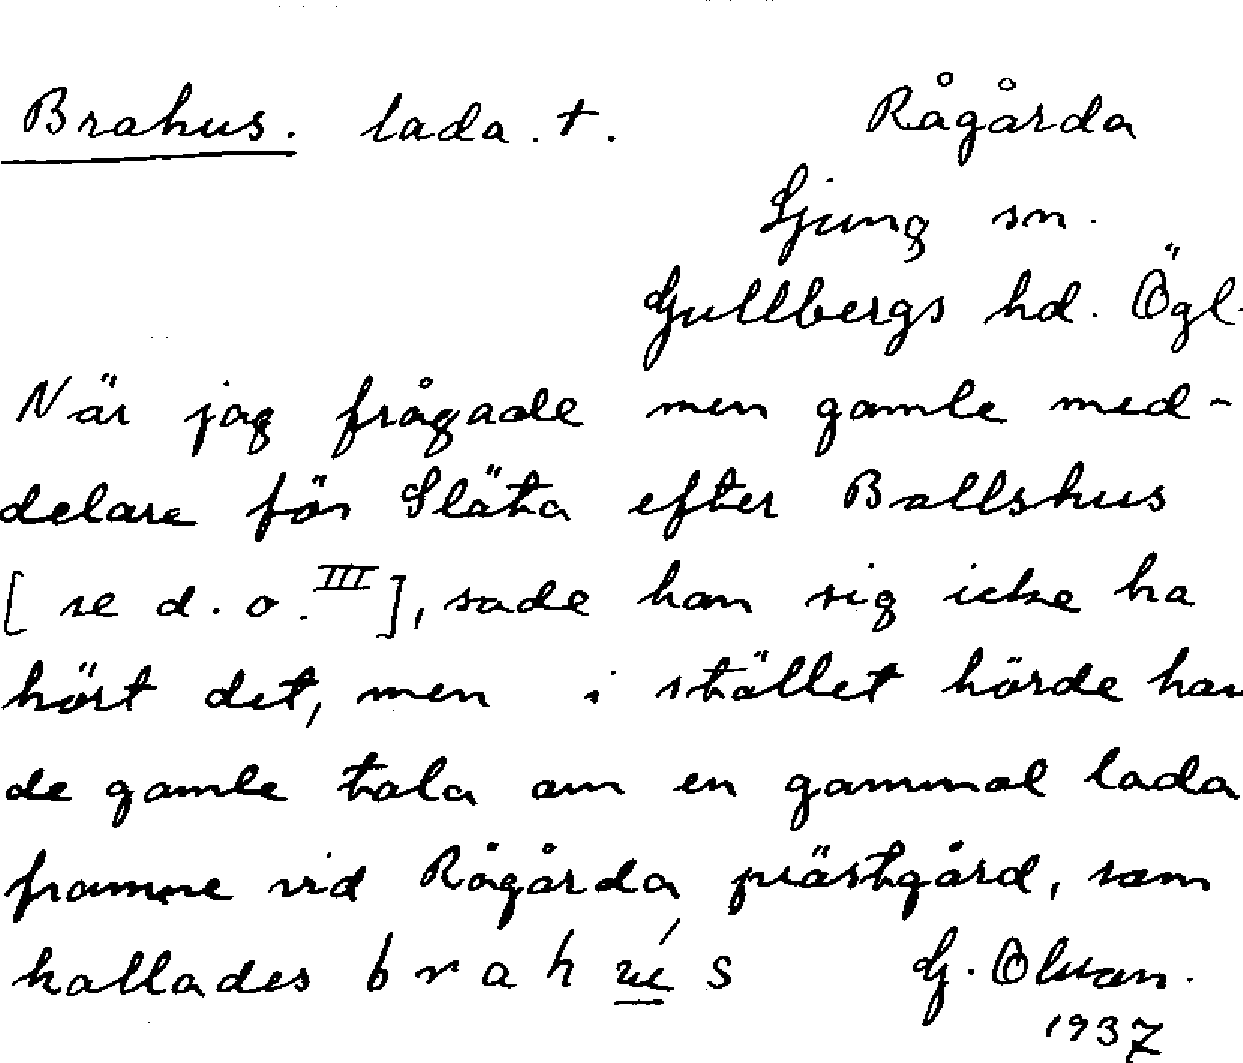 Brahus. lada. †. Rågårda
Ljung sn.
Gullbergs hd. Ögl.
När jag frågade min gamle med-
delare för Släta efter Ballshus
[se d. o. III], sade han sig icke ha
hört det, men i stället hörde han
de gamle tala om en gammal lada
framme vid Rågårda prästgård, som
kallades brahú̲s G. Olsson.
1937